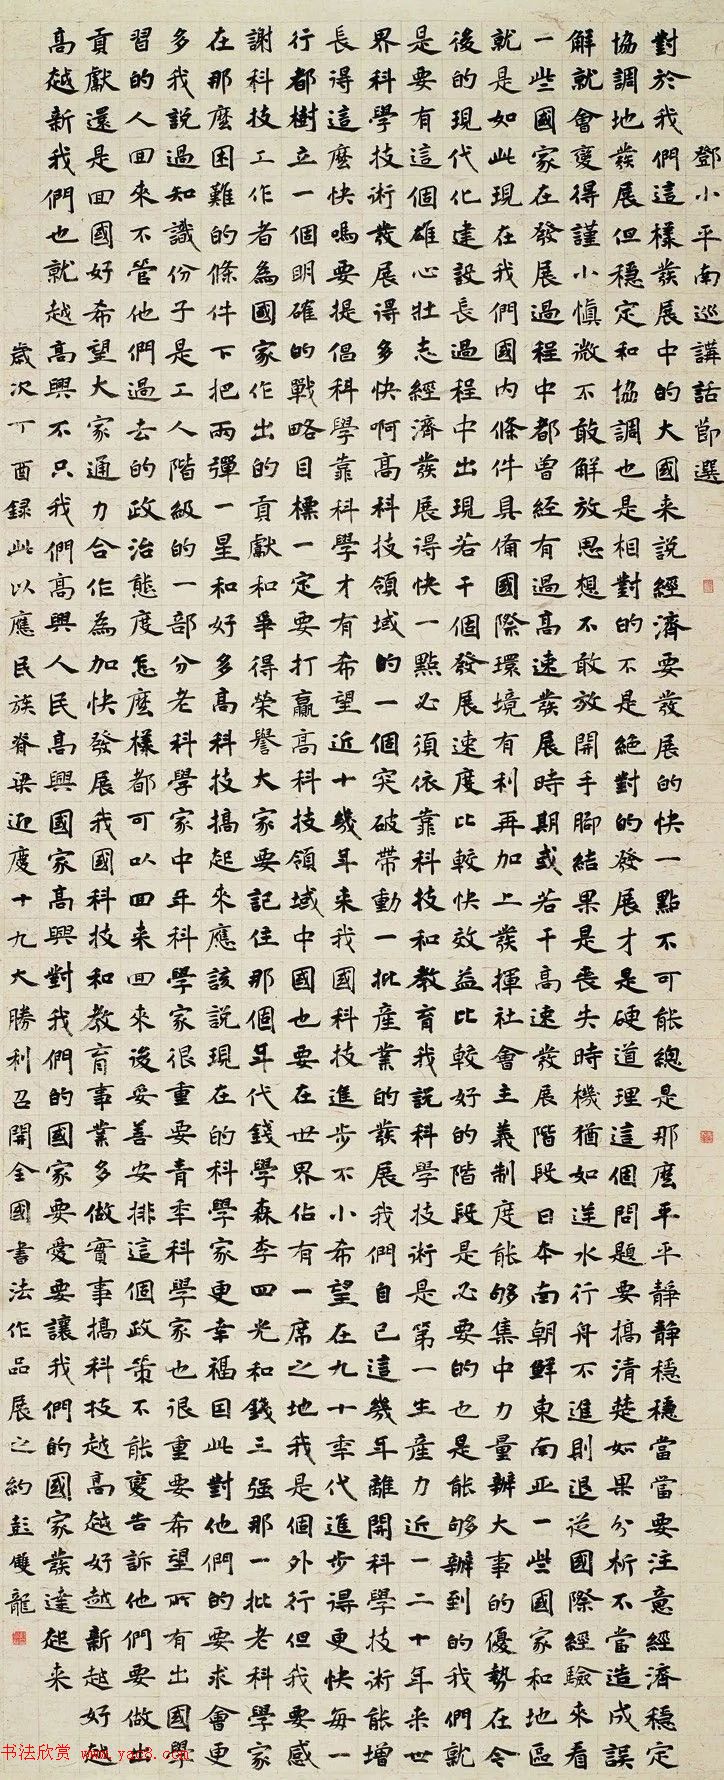 鄧小平南巡講話節選
對於我們這樣發展中的大國来說經濟要發展的快一點不可能總是那麽平平靜靜穩穩當當要注意經濟穩定
協調地發展但穩定和協調也是相對的不是絶對的發展才是硬道理這個問題要搞清楚如果分析不當造成誤
解就會變得謹小慎微不敢解放思想不敢放開手脚結果是喪失時機猶如逆水行舟不進則退從國際經驗來看
一些國家在發展過程中都曾經有過高速發展時期或若干高速發展階段日本南朝鮮東南亞一些國家和地區
就是如此現在我們國内條件具備國際環境有利再加上發揮社會主義制度能够集中力量辦大事的優勢在今
後的現代化建設長過程中出現若干個發展速度比較快效益比較好的階段是必要的也是能够辦到的我們就
是要有這個雄心壯志經濟發展得快一點必須依靠科技和教育我説科學技術是第一生産力近一二十年来世
界科學技術發展得多快啊高科技領域的一個突破帶動一批産業的發展我們自己這幾年離開科學技術能增
長得這麽快嗎要提倡科學靠科學才有希望近十幾年来我國科技進步不小希望在九十年代進步得更快每一
行都樹立一個明確的戰略目標一定要打贏高科技領域中國也要在世界佔有一席之地我是個外行但我要感
謝科技工作者為國家作出的貢獻和爭得榮譽大家要記住那個年代錢學森李四光和錢三强那一批老科學家
在那麽困難的條件下把兩彈一星和好多高科技搞起來應該說現在的科學家更幸福因此對他們的要求會更
多我說過知識份子是工人階級的一部分老科學家中年科學家很重要青年科學家也很重要希望所有出國學
習的人回來不管他們過去的政治態度怎麽樣都可以回来回來後妥善安排這個政策不能變告訴他們要做出
貢獻還是回國好希望大家通力合作為加快發展我國科技和教育事業多做實事搞科技越高越好越新越好越
高越新我們也就越高興不只我們高興人民高興國家高興對我們的國家要愛要讓我們的國家發達起来
歲次丁酉録此以應民族脊梁迎度十九大勝利召開全國書法作品展之約彭雙龍
书法欣赏 www.yac8.com